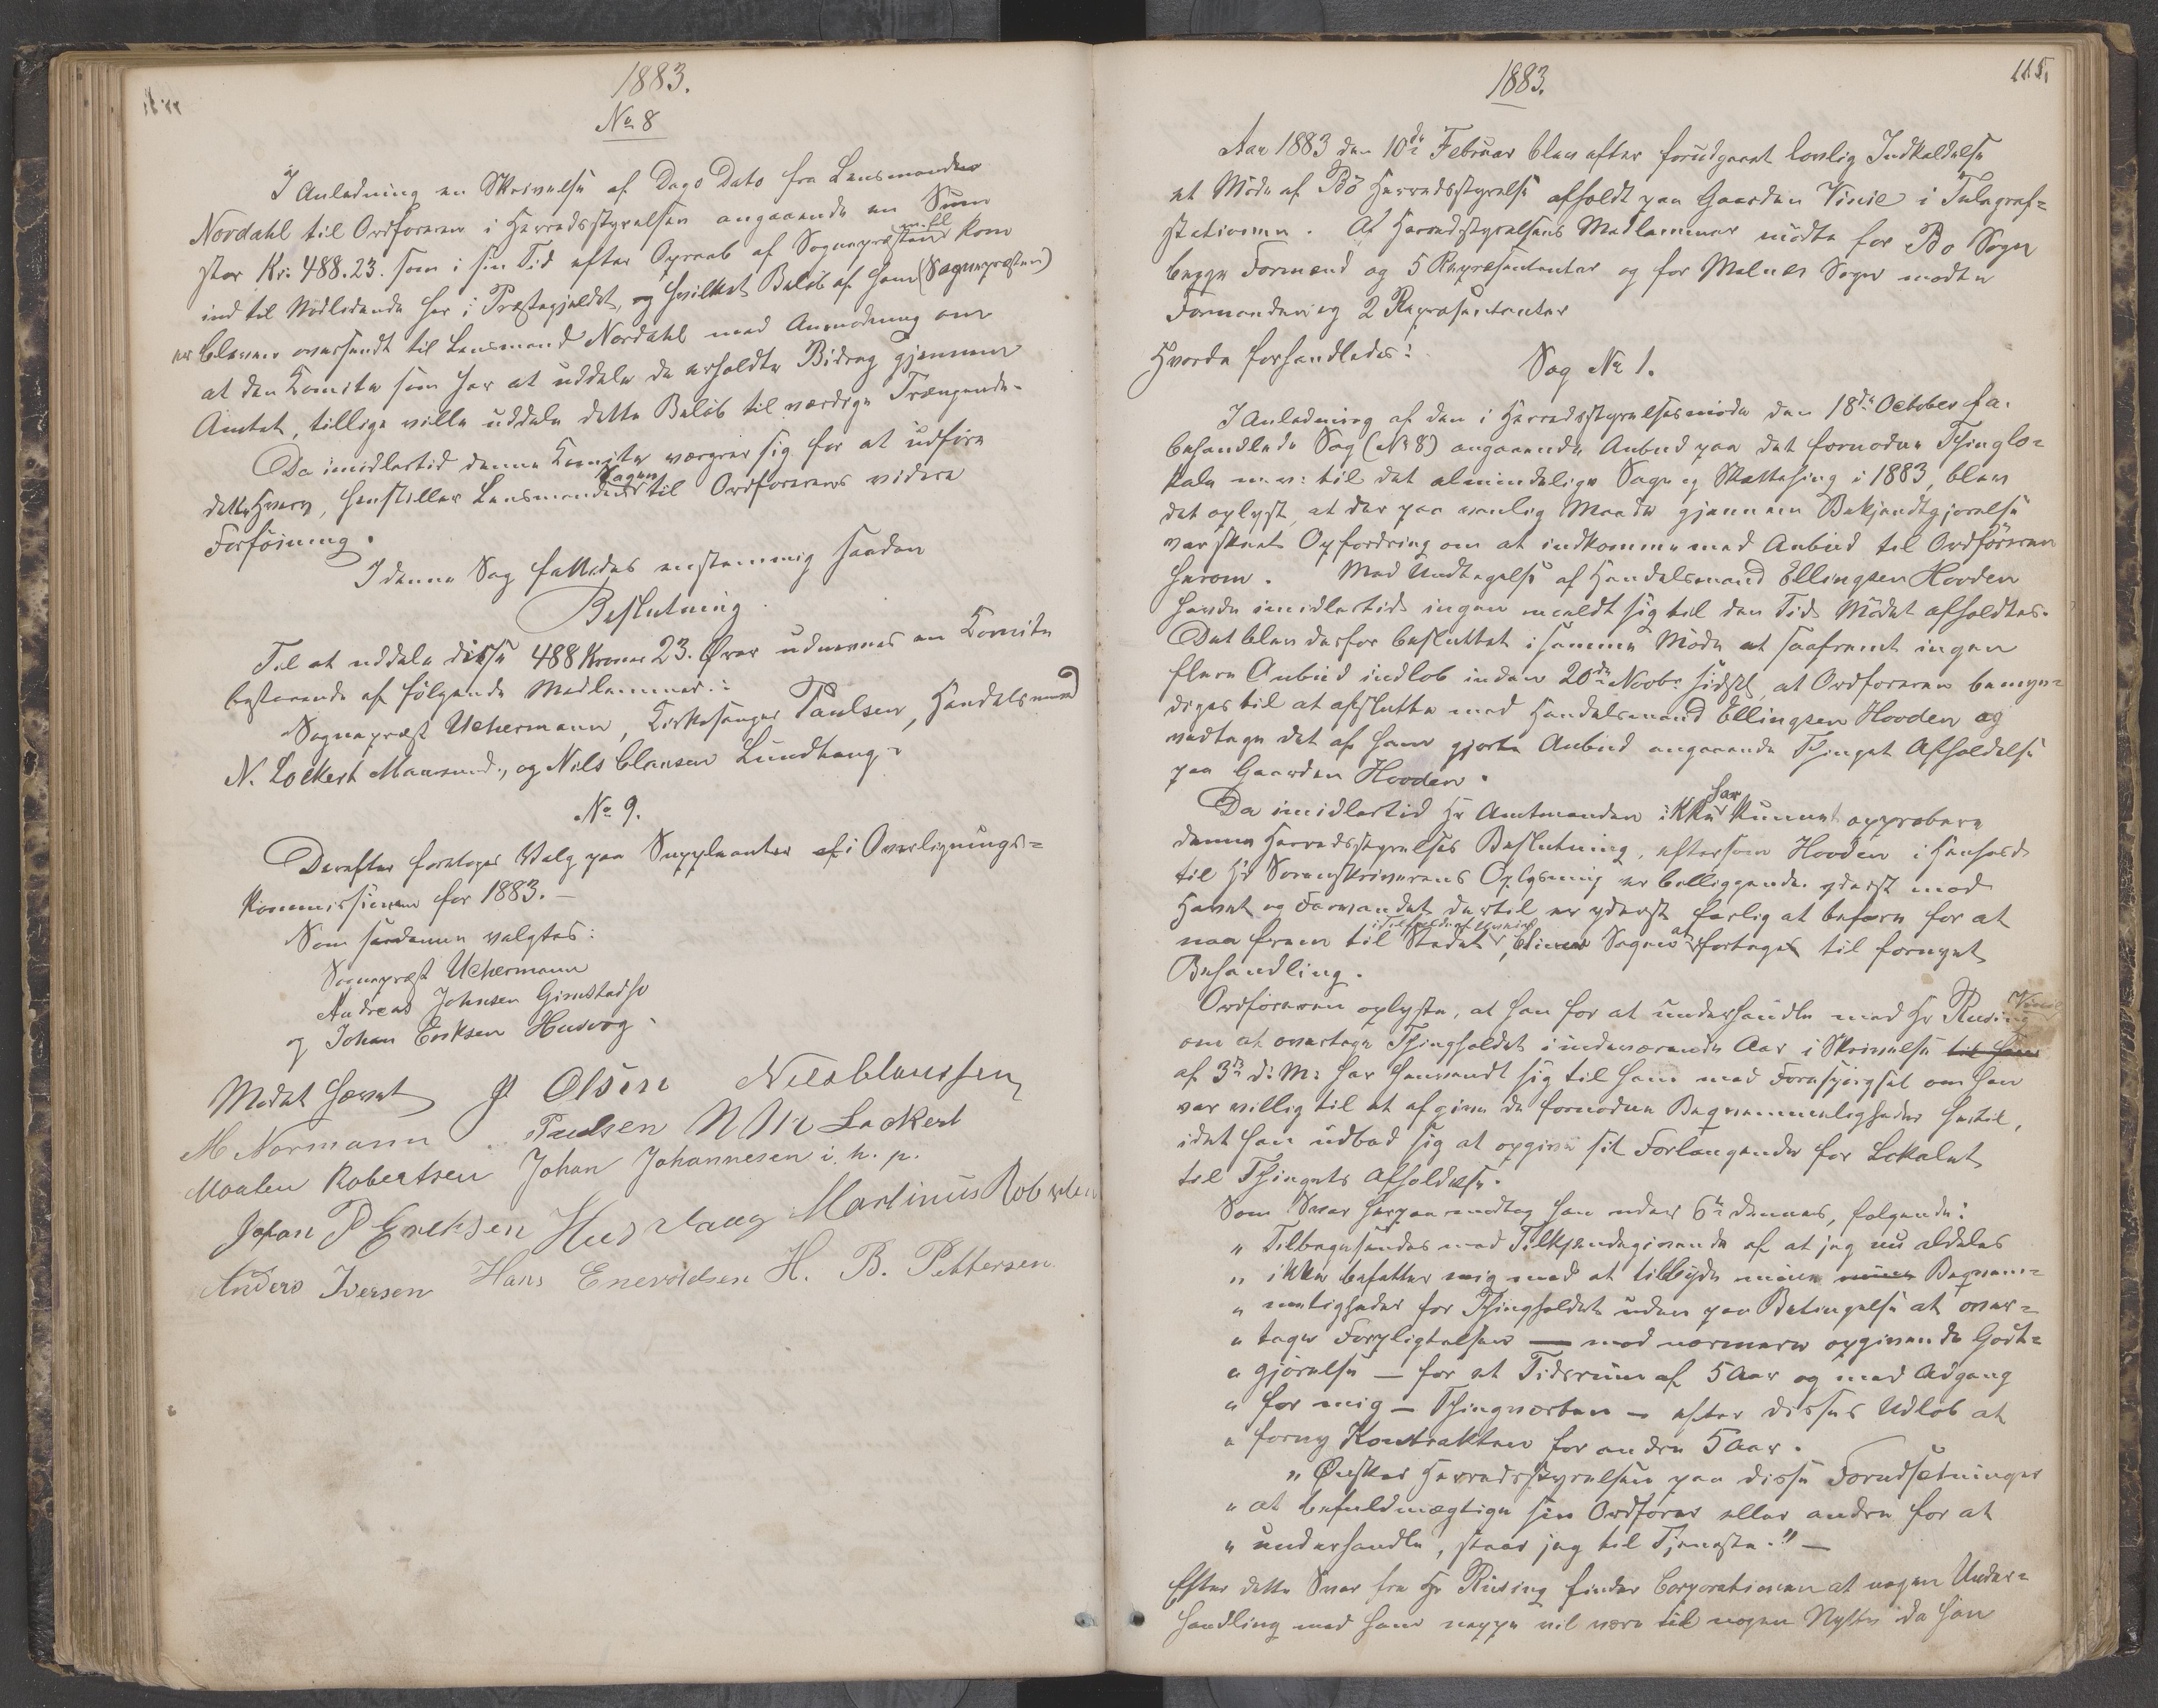 1883.
No 8
I Anledning en Skrivelse af Dags Dato fra Lensmanden
Nordahl til Ordføreren i Herredsstyrelsen angaaende en Sum
m. fl.
stor Kr. 488.23. som i sin Tid efter Opraab af Sognepræsten kom
ind til Nødlidende her i Præstegjeldet, og hvilket Beløb af ham (Sognepræsten)
er bleven oversendt til Lensmand Nordahl med Anmodning om
at den Komite som har at uddele de erholdte Bidrag gjennem
Amtet, tillige ville uddele dette Beløb til værdige Trængende.
Da imidlertid denne Komite værgrer sig for at udføre
Sagen
dette Hverv, henstiller Lensmanden til Ordførerens videre
Forføining.
I denne Sag fattedes enstemmig saadan
Beslutning.
Til at uddele disse 488 Kroner 23. Øre udnævnes en Komite
bestaaende af følgende Medlemmer:
Sognepræst Uchermann, Kirkesanger Paulsen, Handelsmand
N. Lockert Maursund, og Nils Clausen Lundhaug.
No 9.
Derefter foretoges Valg paa Suppleanter af i Overlignings=
kommissionen for 1883. —
Som saadanne valgtes:
Sognepræst Uchermann
Andreas Johnsen Gimstadhø
og Johan Eriksen Husvog.
Mødet hævet
Olsen Nils Claussen
M Normann Paulsen Lockert
Maaten Robertsen Johan Johannesen i. h. p.
Johan P Eriksen Husvaag Martinus Robertsen
Anders Iversen Hans Enevoldsen H. B. Pettersen
1883.
115.
Aar 1883 den 10de Februar blev efter forudgaaet lovlig Indkaldelse
et Møde af Bø Herredsstyrelse afholdt paa Gaarden Vinie i Telegraf=
stationen. Af Herredsstyrelsens Medlemmer mødte for Bø Sogn
begge Formænd og 5 Repræsentanter og for Malnes Sogn mødte
Formanden og 2 Repræsentanter
Hvorda forhandledes:
Sag No 1.
I Anledning af den i Herredsstyrelsesmøde den 18de October f. a.
behandlede Sag (No 8) angaaende Anbud paa det fornødne Thinglo=
kale m. v. til det almindelige Sage og Skattething i 1883, blev
det oplyst, at der paa vanlig Maade gjennem Bekjendtgjørelse
var skeet Opfordring om at indkomme med Anbud til Ordføreren
herom. Med Undtagelse af Handelsmand Ellingsen Hovden
havde imidlertid ingen meldt sig til den Tid Mødet afholdtes.
Det blev derfor besluttet i samme Møde at saafremt ingen
flere Anbud indløb inden 20de Novbr sidstl, at Ordføreren bemyn=
diges til at afslutte med Handelsmand Ellingsen Hovden og
vedtage det af ham gjorte Anbud angaaende Thinget Afholdelse
paa Gaarden Hovden.
har
Da imidlertid Hr Amtmanden ikke kunnet approbere
denne Herredsstyrelses Beslutning, eftersom Hovden i Henhold
til Hr Sorenskriverens Oplysning er beliggende yderst mod
Havet og Farvandet dertil er yderst farlig at befare for at
naa frem til Stedet, bliver Sagen at foretages til fornyet
Behandling.
Ordføreren oplyste, at han for at underhandle med Hr Rusing
Vinie
om at overtage Thingholdet i indeværende Aar i Skrivelse til ham
af 3de d. M. har henvendt sig til ham med Forespørgsel om han
var villig til at afgive de fornødne Beqvemmeligheder hertil,
idet han udbad sig at opgive sit Forlangende for Lokalet
til Thingets Afholdelse.
Som Svar herpaa modtog han under 6te dennes, følgende:
" Tilbagesendes med Tilkjendegivende af at jeg nu aldeles
" ikke befatter mig med at tilbyde mine mine Beqvem=
" meligheder for Thingholdet uden paa Betingelse at over=
" tage Forpligtelsen — mod nærmere opgivende Godt=
" gjørelse — for et Tidsrum af 5 Aar og med Adgang
" for mig — Thingverten — efter disses Udløb at
" forny Kontrakten for andre 5 Aar.
" Ønsker Herredsstyrelsen paa disse Forudsætninger
" at befuldmægtige sin Ordfører eller andre for at
" underhandle, staar jeg til Tjeneste." —
Efter dette Svar fra Hr Rusing finder Corporationen at nogen Under=
handling med ham neppe vil være til nogen Nytte da han